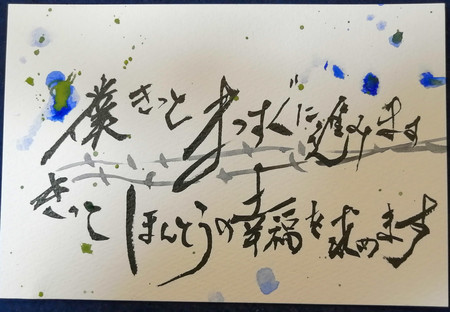 僕きっとまっすぐに進みます
きっとほんとうの幸福を求めます